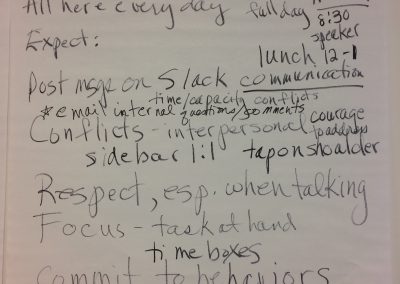 All here every day full day
8:30
speaker
Expect:
lunch 12-1
Post msgs on Slack communication
time/capacity conflicts
*email internal questions/comments
Conflicts - interpersonal courage
sidebar 1:1 tap on shoulder
Respect, esp. when talking
Focus - task at hand
time boxes
Commit to behaviors